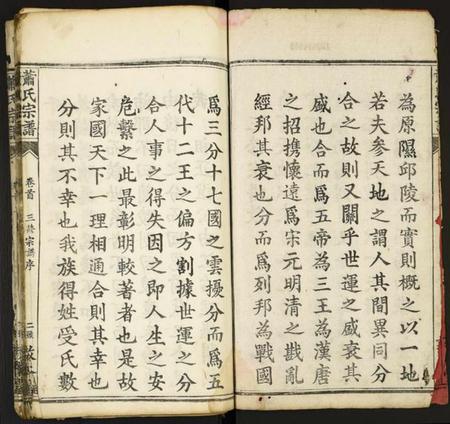 為原隰邱陵而實則概之以一地
若夫參天地之謂人其間異同分
合之故則又關乎世運之盛衰其
盛也合而為五帝為三王為漢唐
之招攜懷遠為宋元明清之戡亂
經邦其衰也分而為列邦為戰國
為三分十七國之雲擾分而為五
代十二王之偏方割據世運之分
合人事之得失因之即人生之安
危繫之此最彰明較著者也是故
家國天下一理相通合則其幸也
分則其不幸也我族得姓受氏數
蕭氏宗譜
卷首
宗譜序